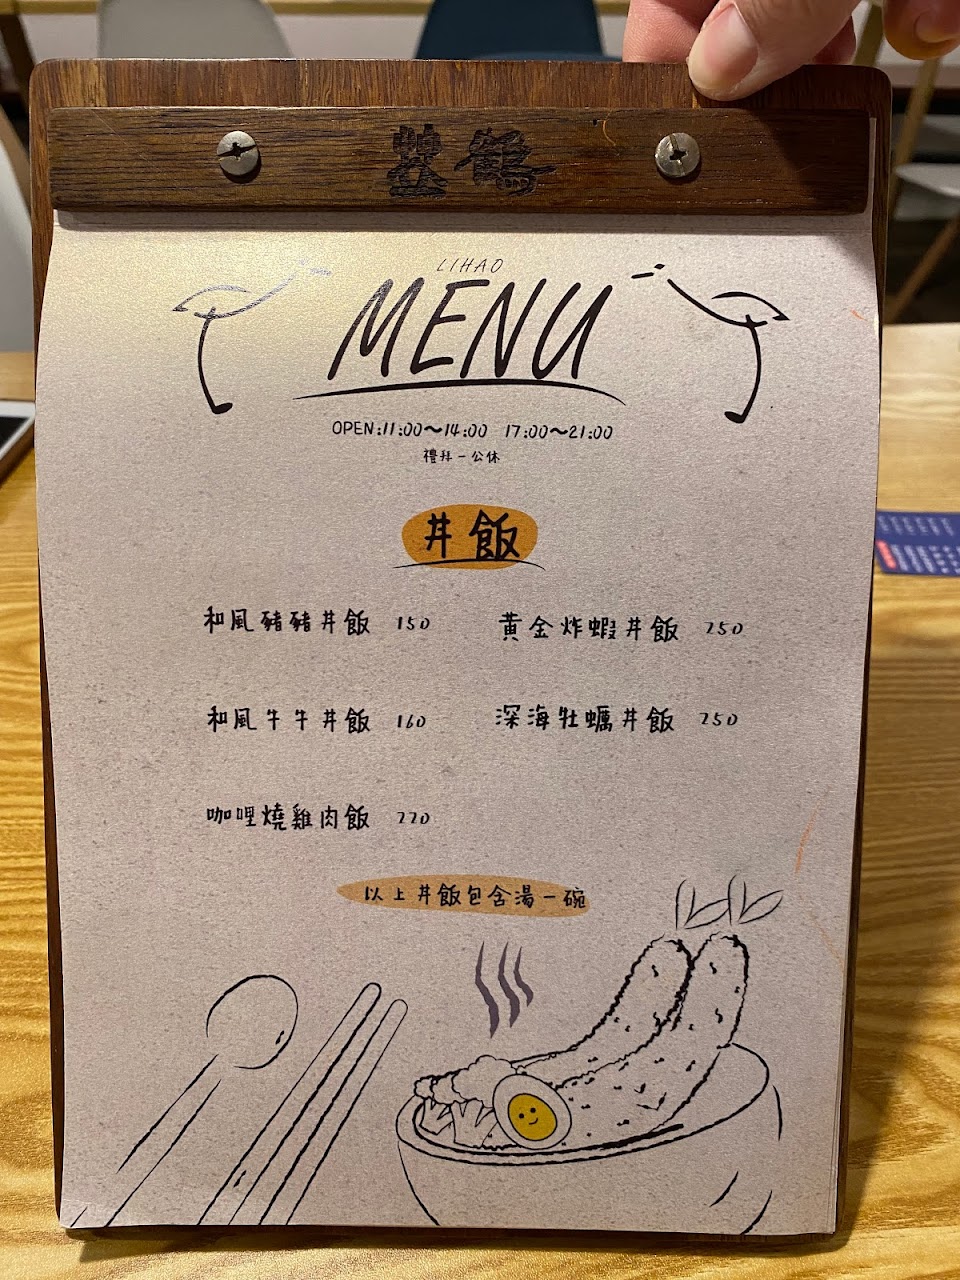 LIHAO
MENU
OPEN:11:00~14:00 17:00~21:00
禮拜一公休
丼飯
和風豬豬丼飯 150
黃金炸蝦丼飯 250
和風牛牛丼飯 160
深海牡蠣丼飯 250
咖哩燒雞肉飯 220
以上丼飯包含湯一碗